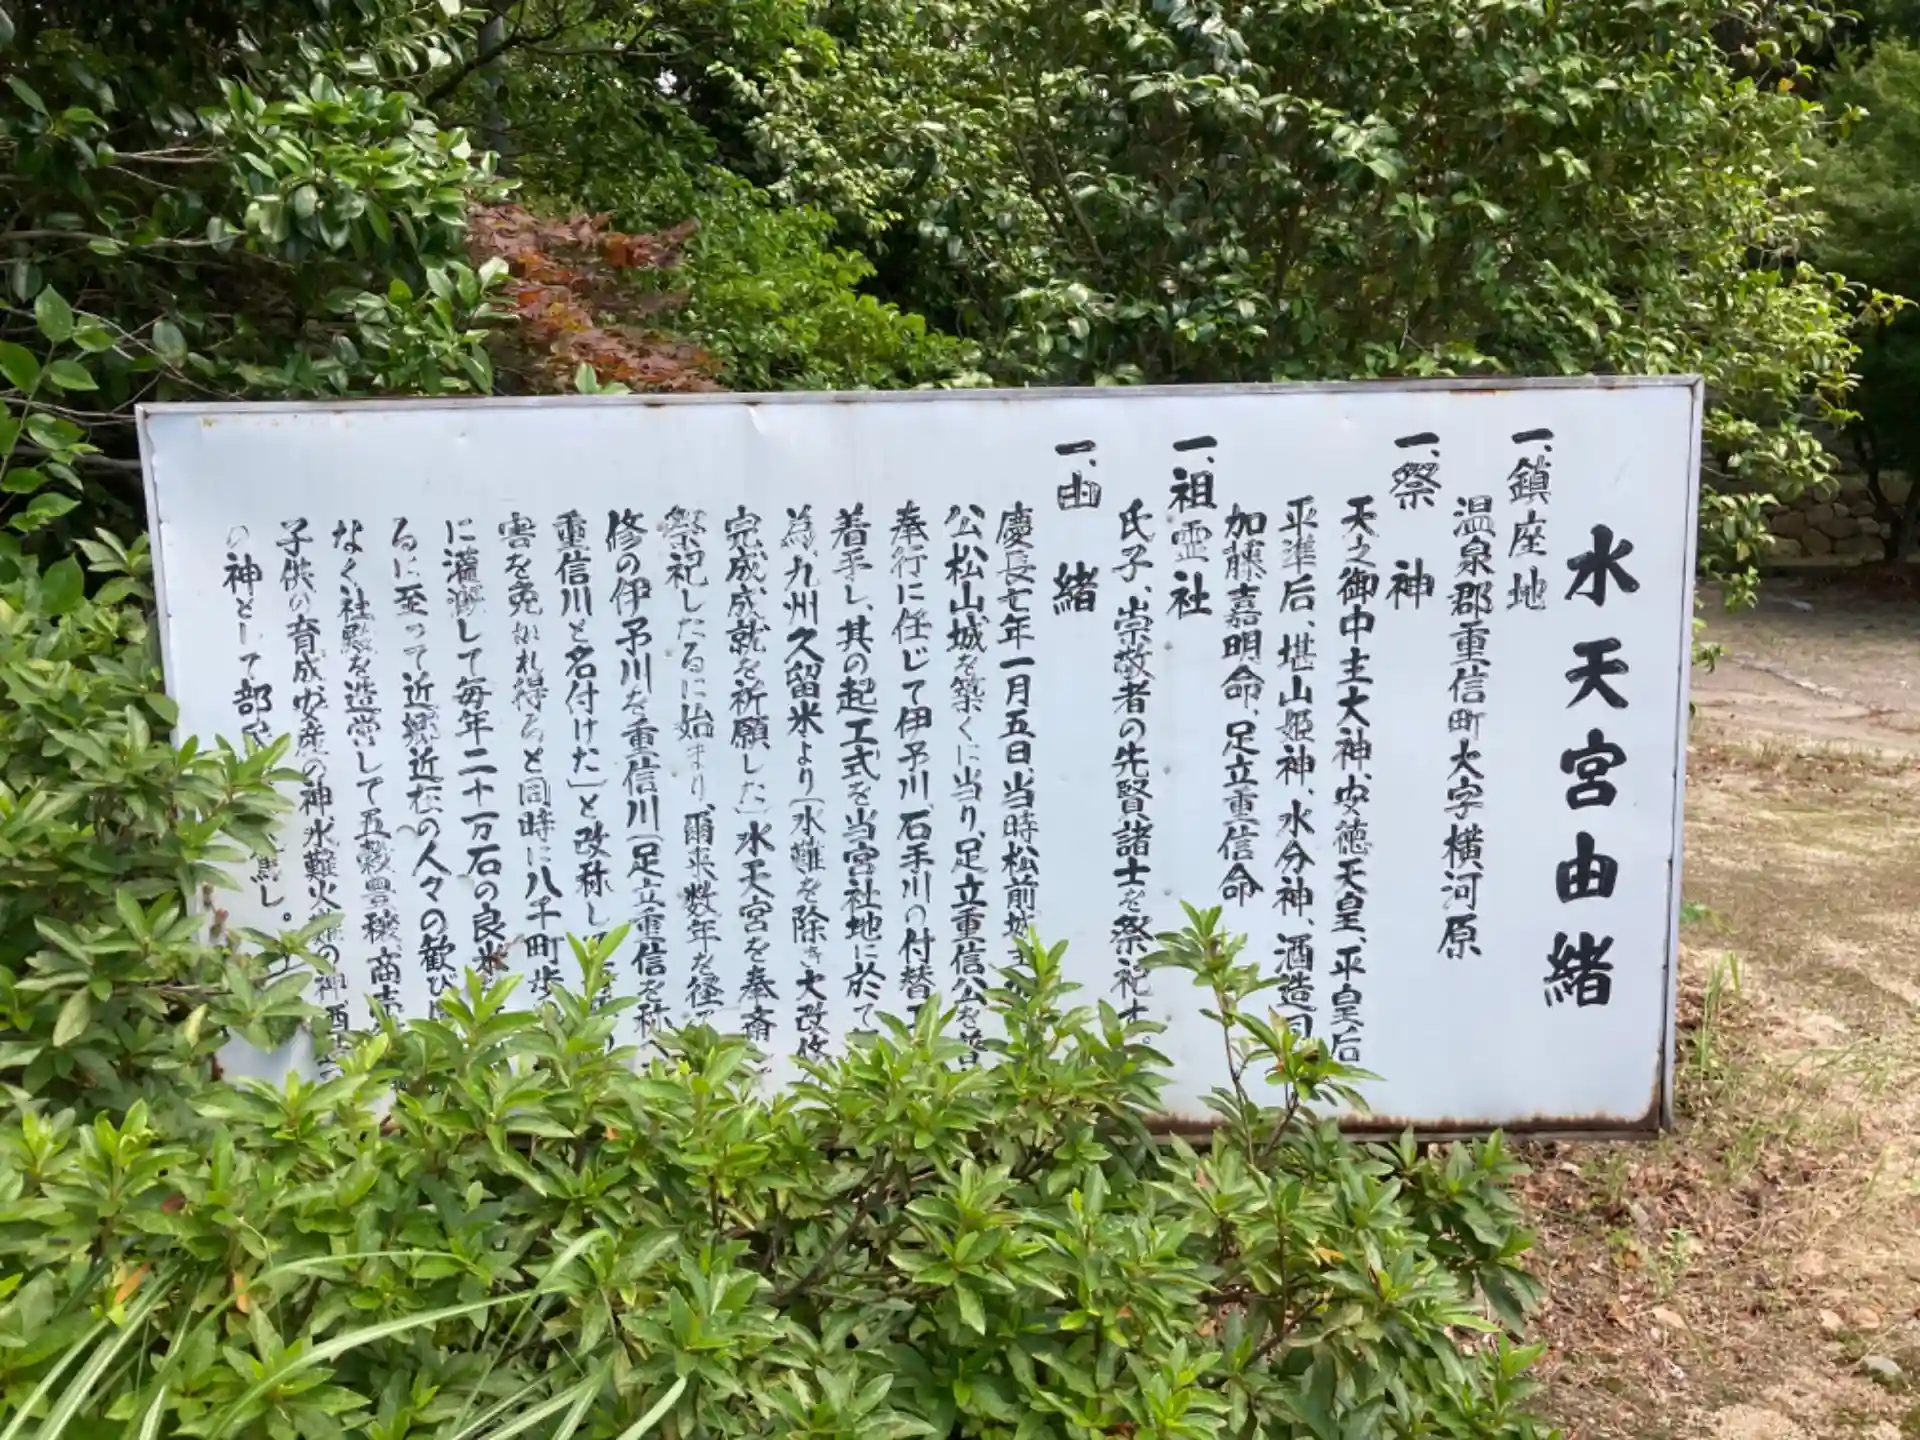 水天宮由緒
一、鎮座地
温泉郡重信町大字横河原
一、祭神
天之御中主大神、安徳天皇、平皇后
平準后、堪山姫神、水分神、酒造司
加藤嘉明命、足立重信命
一、祖霊社
氏子、崇敬者の先賢諸士を祭祀す。
一、由緒
慶長七年一月五日、当時松前城主
公松山城を築くに当り、足立重信公を普
奉行に任じて伊予川、石手川の付替工
着手し、其の起工式を当宮社地に於て
為、九州久留米より「水難を除き大改修
完成成就を祈願した」水天宮を奉斎
祭祀したるに始まり、爾来数年を径
修の伊予川を重信川「足立重信を称へ
重信川と名付けた」と改称し
害を免がれ得ると同時に八千町歩
に灌漑して毎年二十一万石の良米
るに至って近郷近在の人々の歓び
なく社殿を造営して五穀豊穣、商売
子供の育成、安産の神、水難火難の神、酒造
の神として部 篤し。